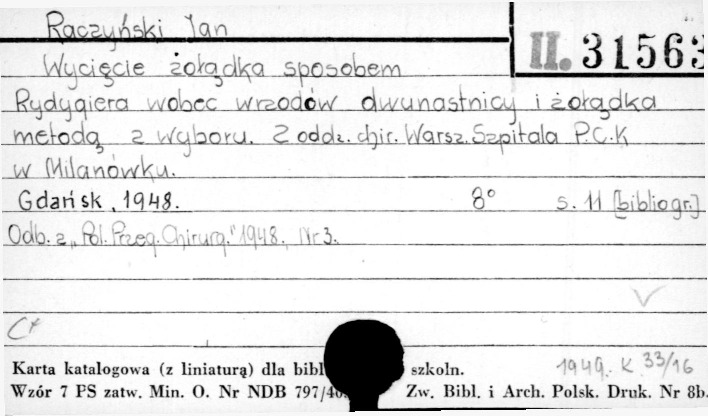 Raczyński Jan
II. 31563
Wycięcie żołądka sposobem
Rydygiera wobec wrzodów dwunastnicy i żołądka
metodą z wyboru. Z oddz. chir. Warsz. Szpitala P.C.K
w Milanówku.
Gdańsk, 1948. 8° s. 11 [bibliogr.]
Odb. z „Pol. Przeg. Chirurg." 1948, Nr 3.
1949. K 33/16
Karta katalogowa (z liniaturą) dla bibl szkoln.
Wzór 7 PS zatw. Min. O. Nr NDB 797/46 Zw. Bibl. i Arch. Polsk. Druk. Nr 8b.